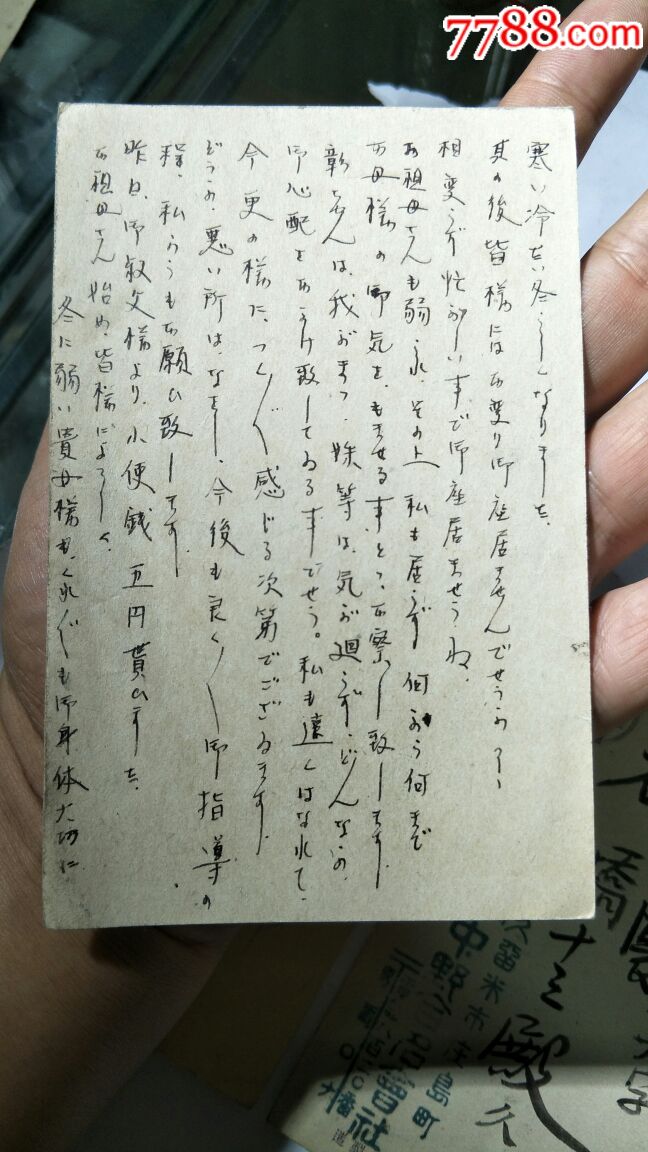 7788.com
寒い冷たい冬らしくなりました、
其の後皆様にはお変り御座居ませんでせうか
相変らず忙がしい事で御座居ませうね、
お祖母さんも弱くれ、その上私も居らず何から何まで
お母様の御気を、もませる事とつくお察し致します
彰さんは、我がまゝ、妹等は、気が廻らず、どんなにか
御心配をおかけ致してゐる事でせう。私も遠くはなれて、
今更の様に、つくづく感じる次第でございます
どうか、悪い所は、なほし、今後も良く〱御指導の
程、私からもお願ひ致します
昨日、御叔父様より、小使銭五円貰ひました
お祖母さん始め、皆様によろしく、
冬に弱い貴母様も、くれぐも御身体大切に
久留米市庄島町
十三殿